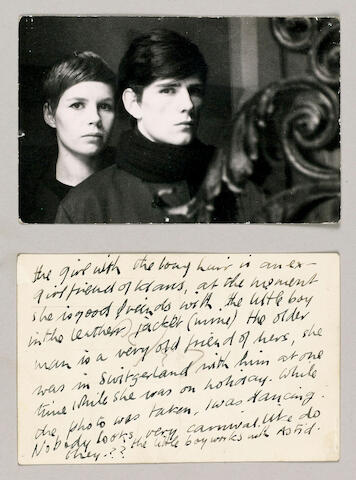 the girl with the long hair is an ex-
girlfriend of Klaus, at the moment
she is good friends with the little boy
in the leather jacket (mine) the older
man is a very old friend of hers, she
was in Switzerland with him at one
time while she was on holiday. While
the photo was taken, I was dancing.
Nobody looks very carnival like do
they.?? the little boy works with Astrid.